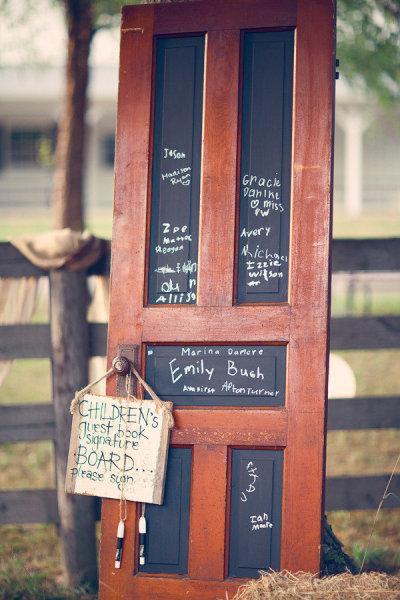 Jason
Madison
Ryan
Zoe
Allison
Gracie
Dahlke
miss
Avery
Michael
Izzie
Wilson
Marina Damore
Emily Bush
Afton Turner
Ian
CHILDREN'S
guest book
signature
BOARD....
please sign